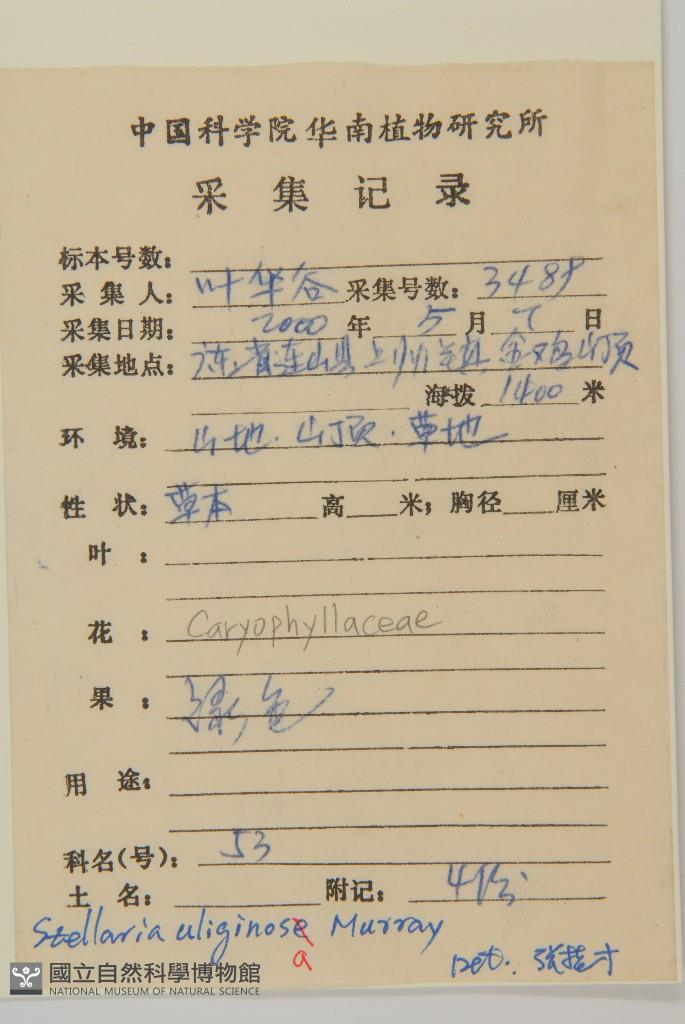 中国科学院华南植物研究所
采集记录
标本号数：
采集人：叶华谷 采集号数：3489
采集日期：2000年5月7日
采集地点：连山县上帅镇金鸡山顶
海拨1400米
环境：山地．山顶．草地
性状：草本 高 米；胸径 厘米
叶：
花：Caryophyllaceae
果：绿色
用途：
科名(号)：53
土名： 附记：4份
Stellaria uliginose Murray
a
Det. 张
國立自然科學博物館
NATIONAL MUSEUM OF NATURAL SCIENCE